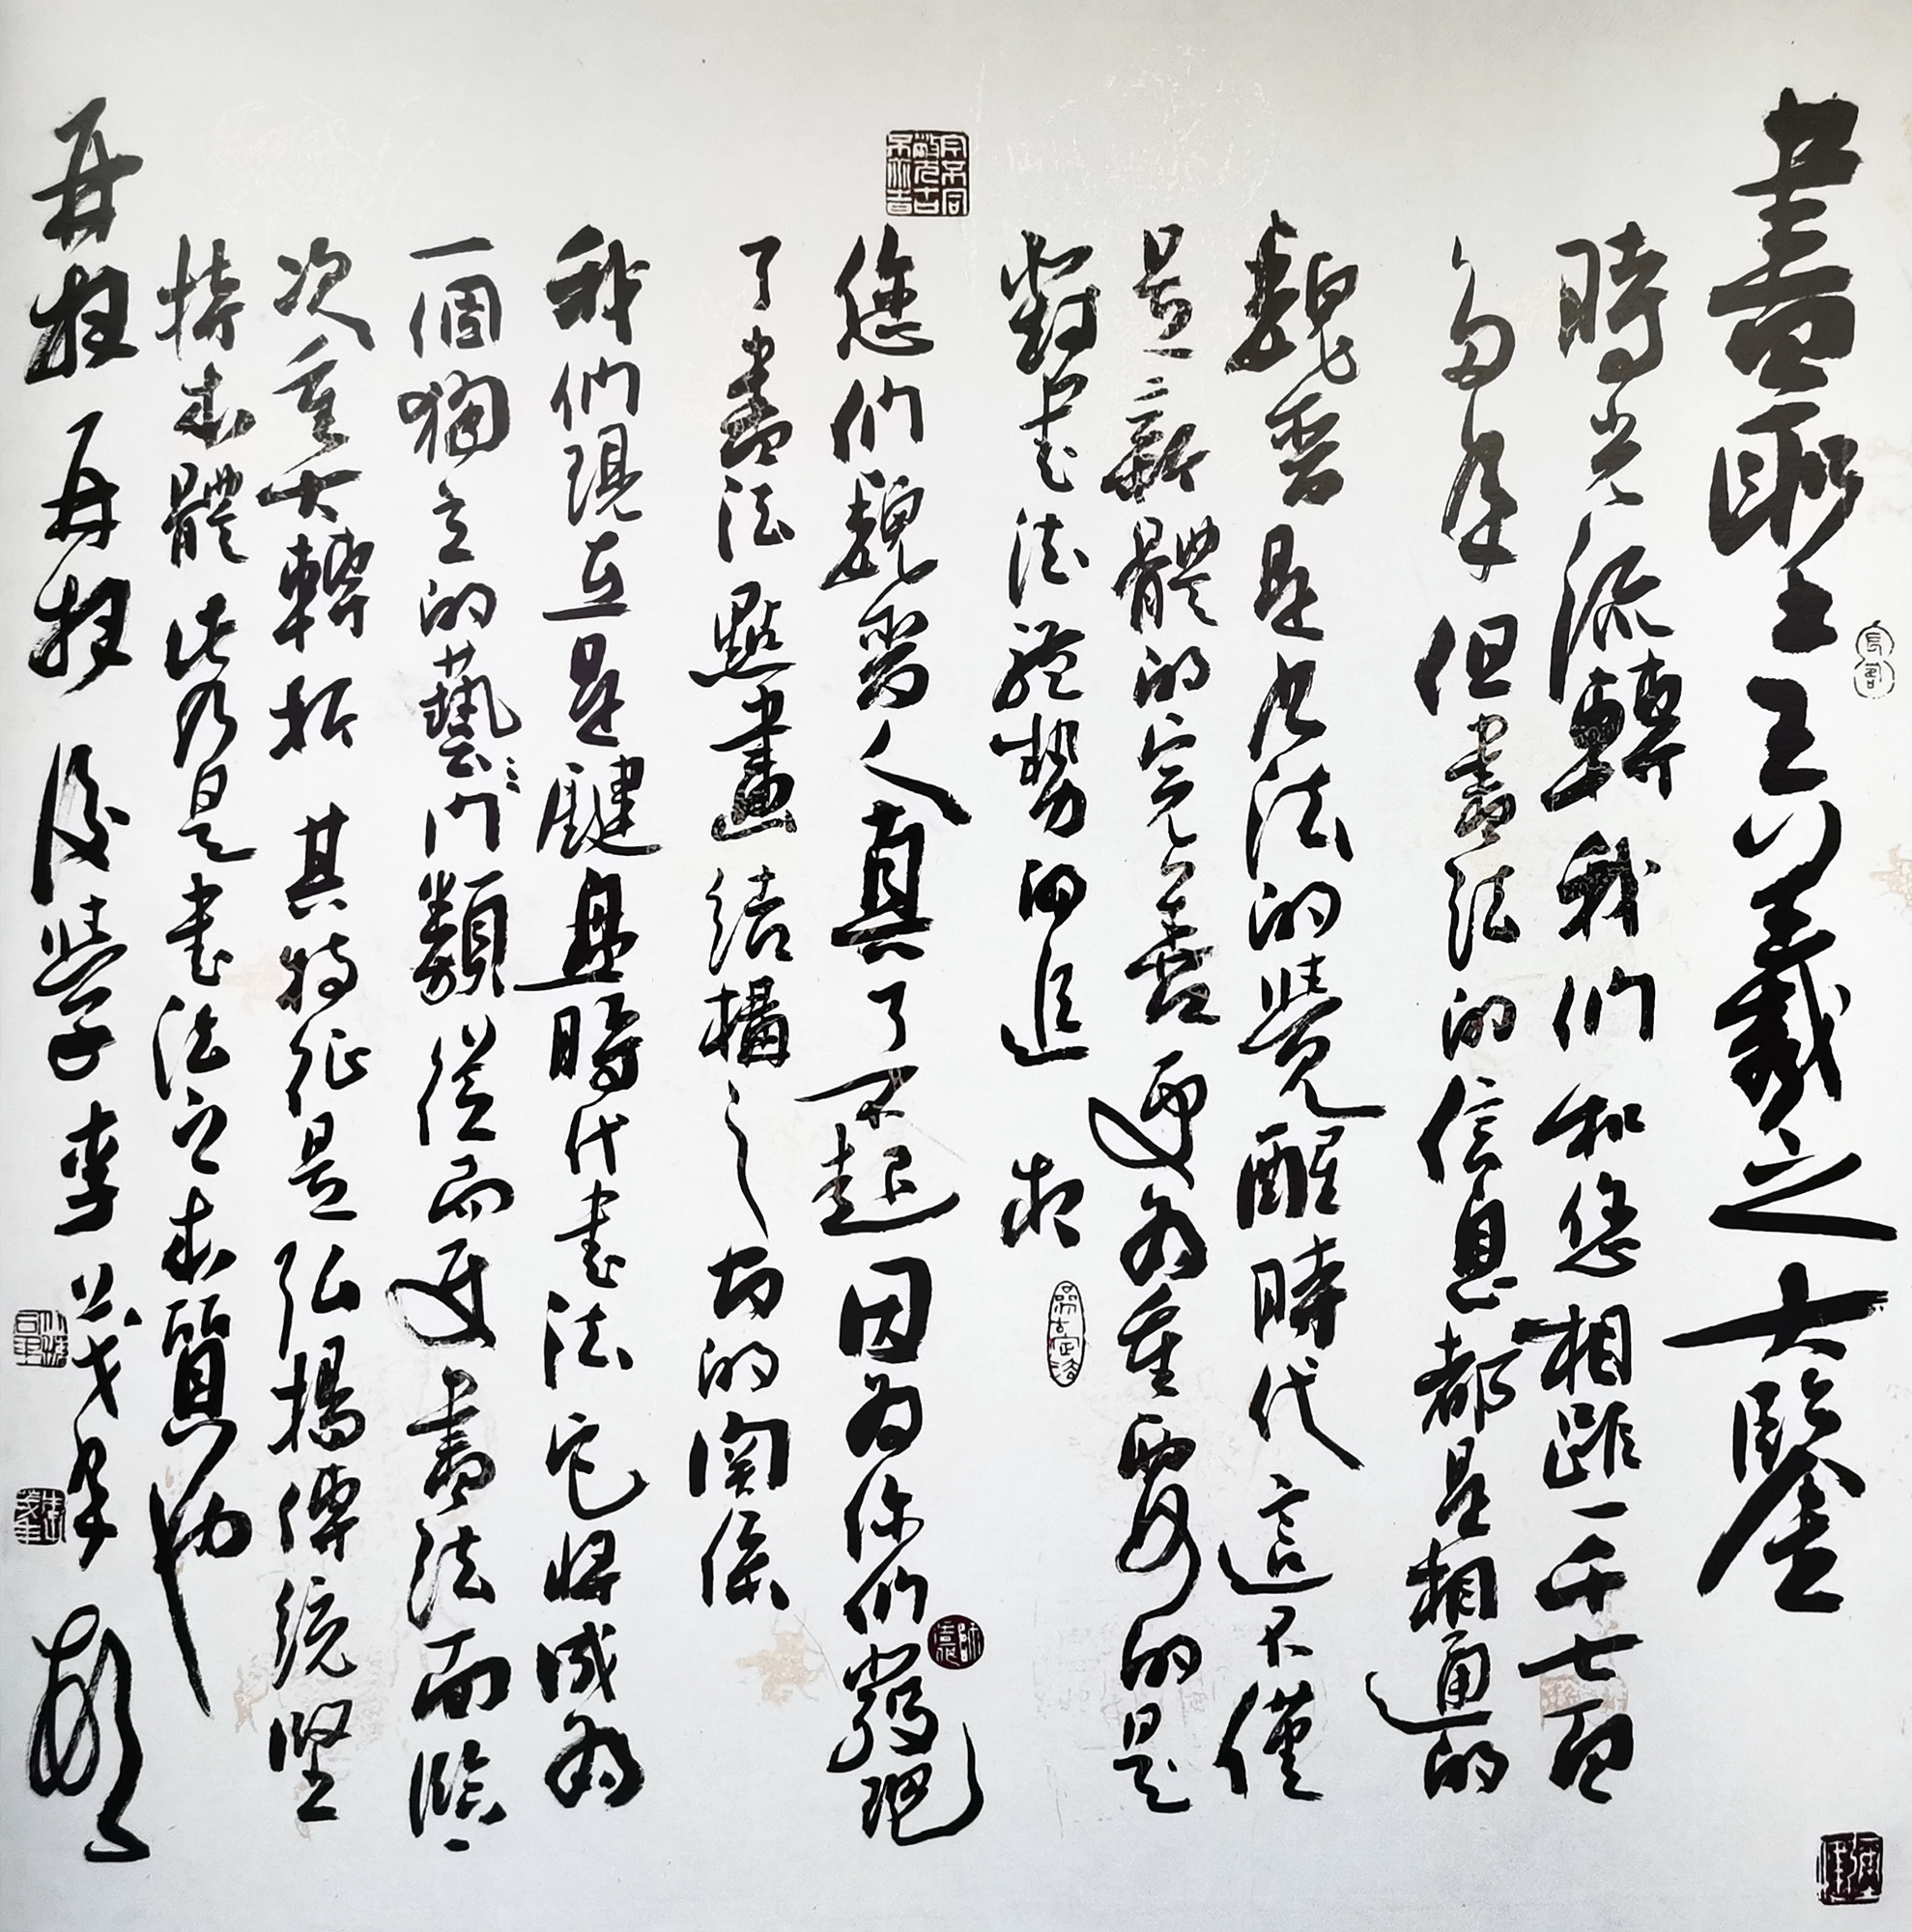 書聖王羲之大鑒
時光流轉我們和您相距一千七百
多年但書法的信息都是相通的
魏晋是書法的覺醒時代這不僅
是新體的完善更為重要的是
對書法體勢的追求
您們魏晋人真了不起因為你們發現
了書法點畫結構之間的関係
我們現在是鍵盤時代書法它將成為
一個獨立的藝術門類從而使書法面臨一
次重大轉折其特征是弘揚傳統堅
持本體此乃是書法之本質也
再拜再拜後學李茂年頓首